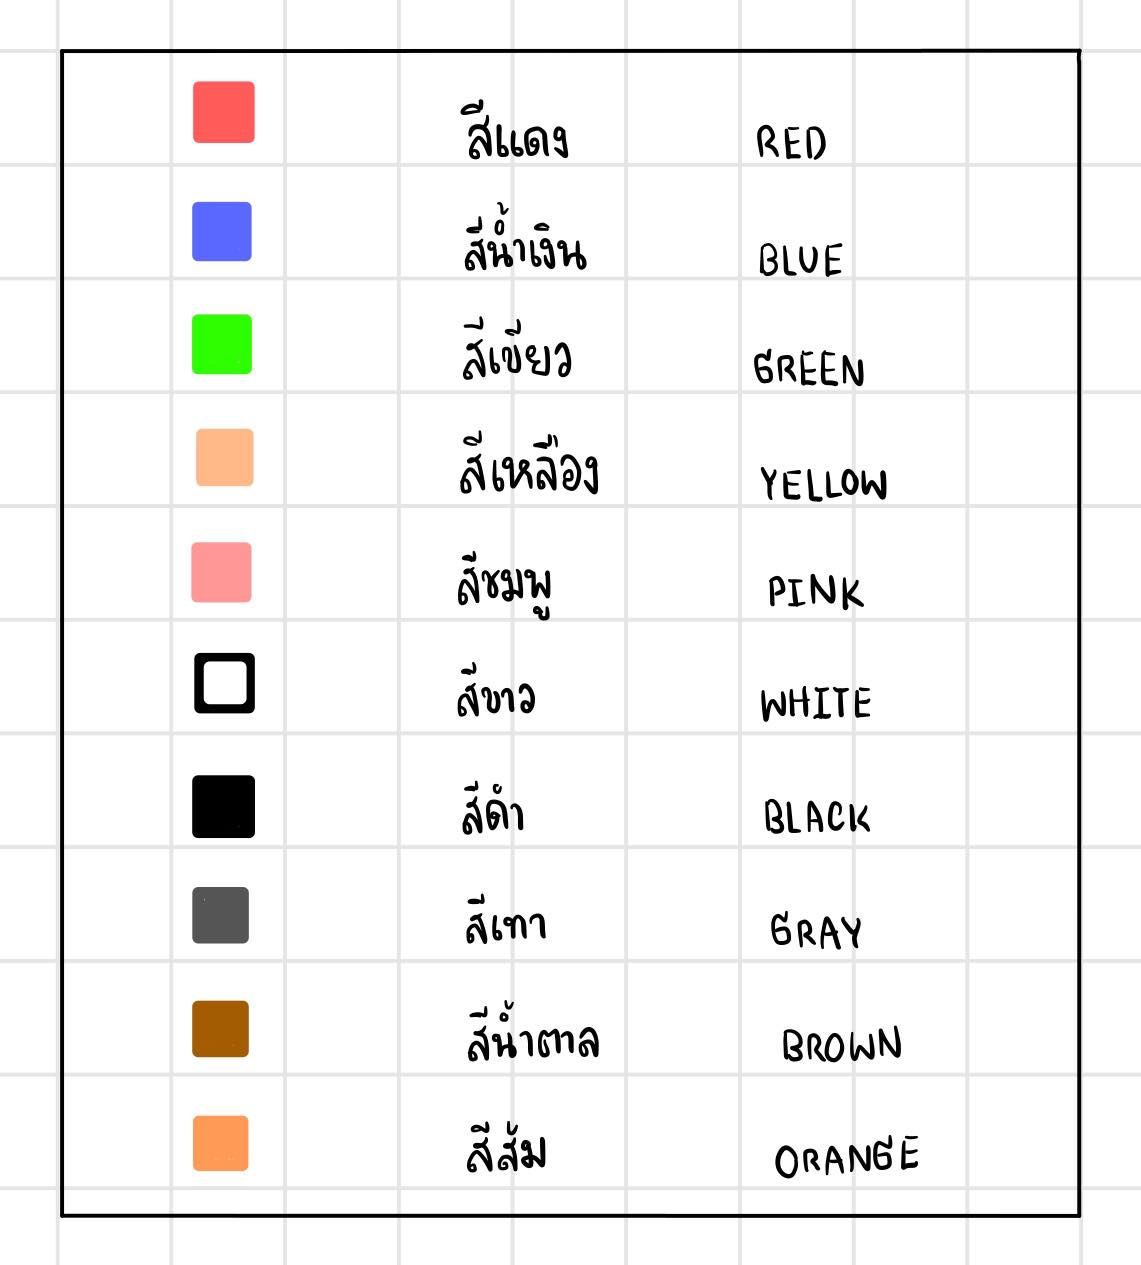 สีแดง RED
สีน้ำเงิน BLUE
สีเขียว GREEN
สีเหลือง YELLOW
สีชมพู PINK
สีขาว WHITE
สีดำ BLACK
สีเทา GRAY
สีน้ำตาล BROWN
สีส้ม ORANGE